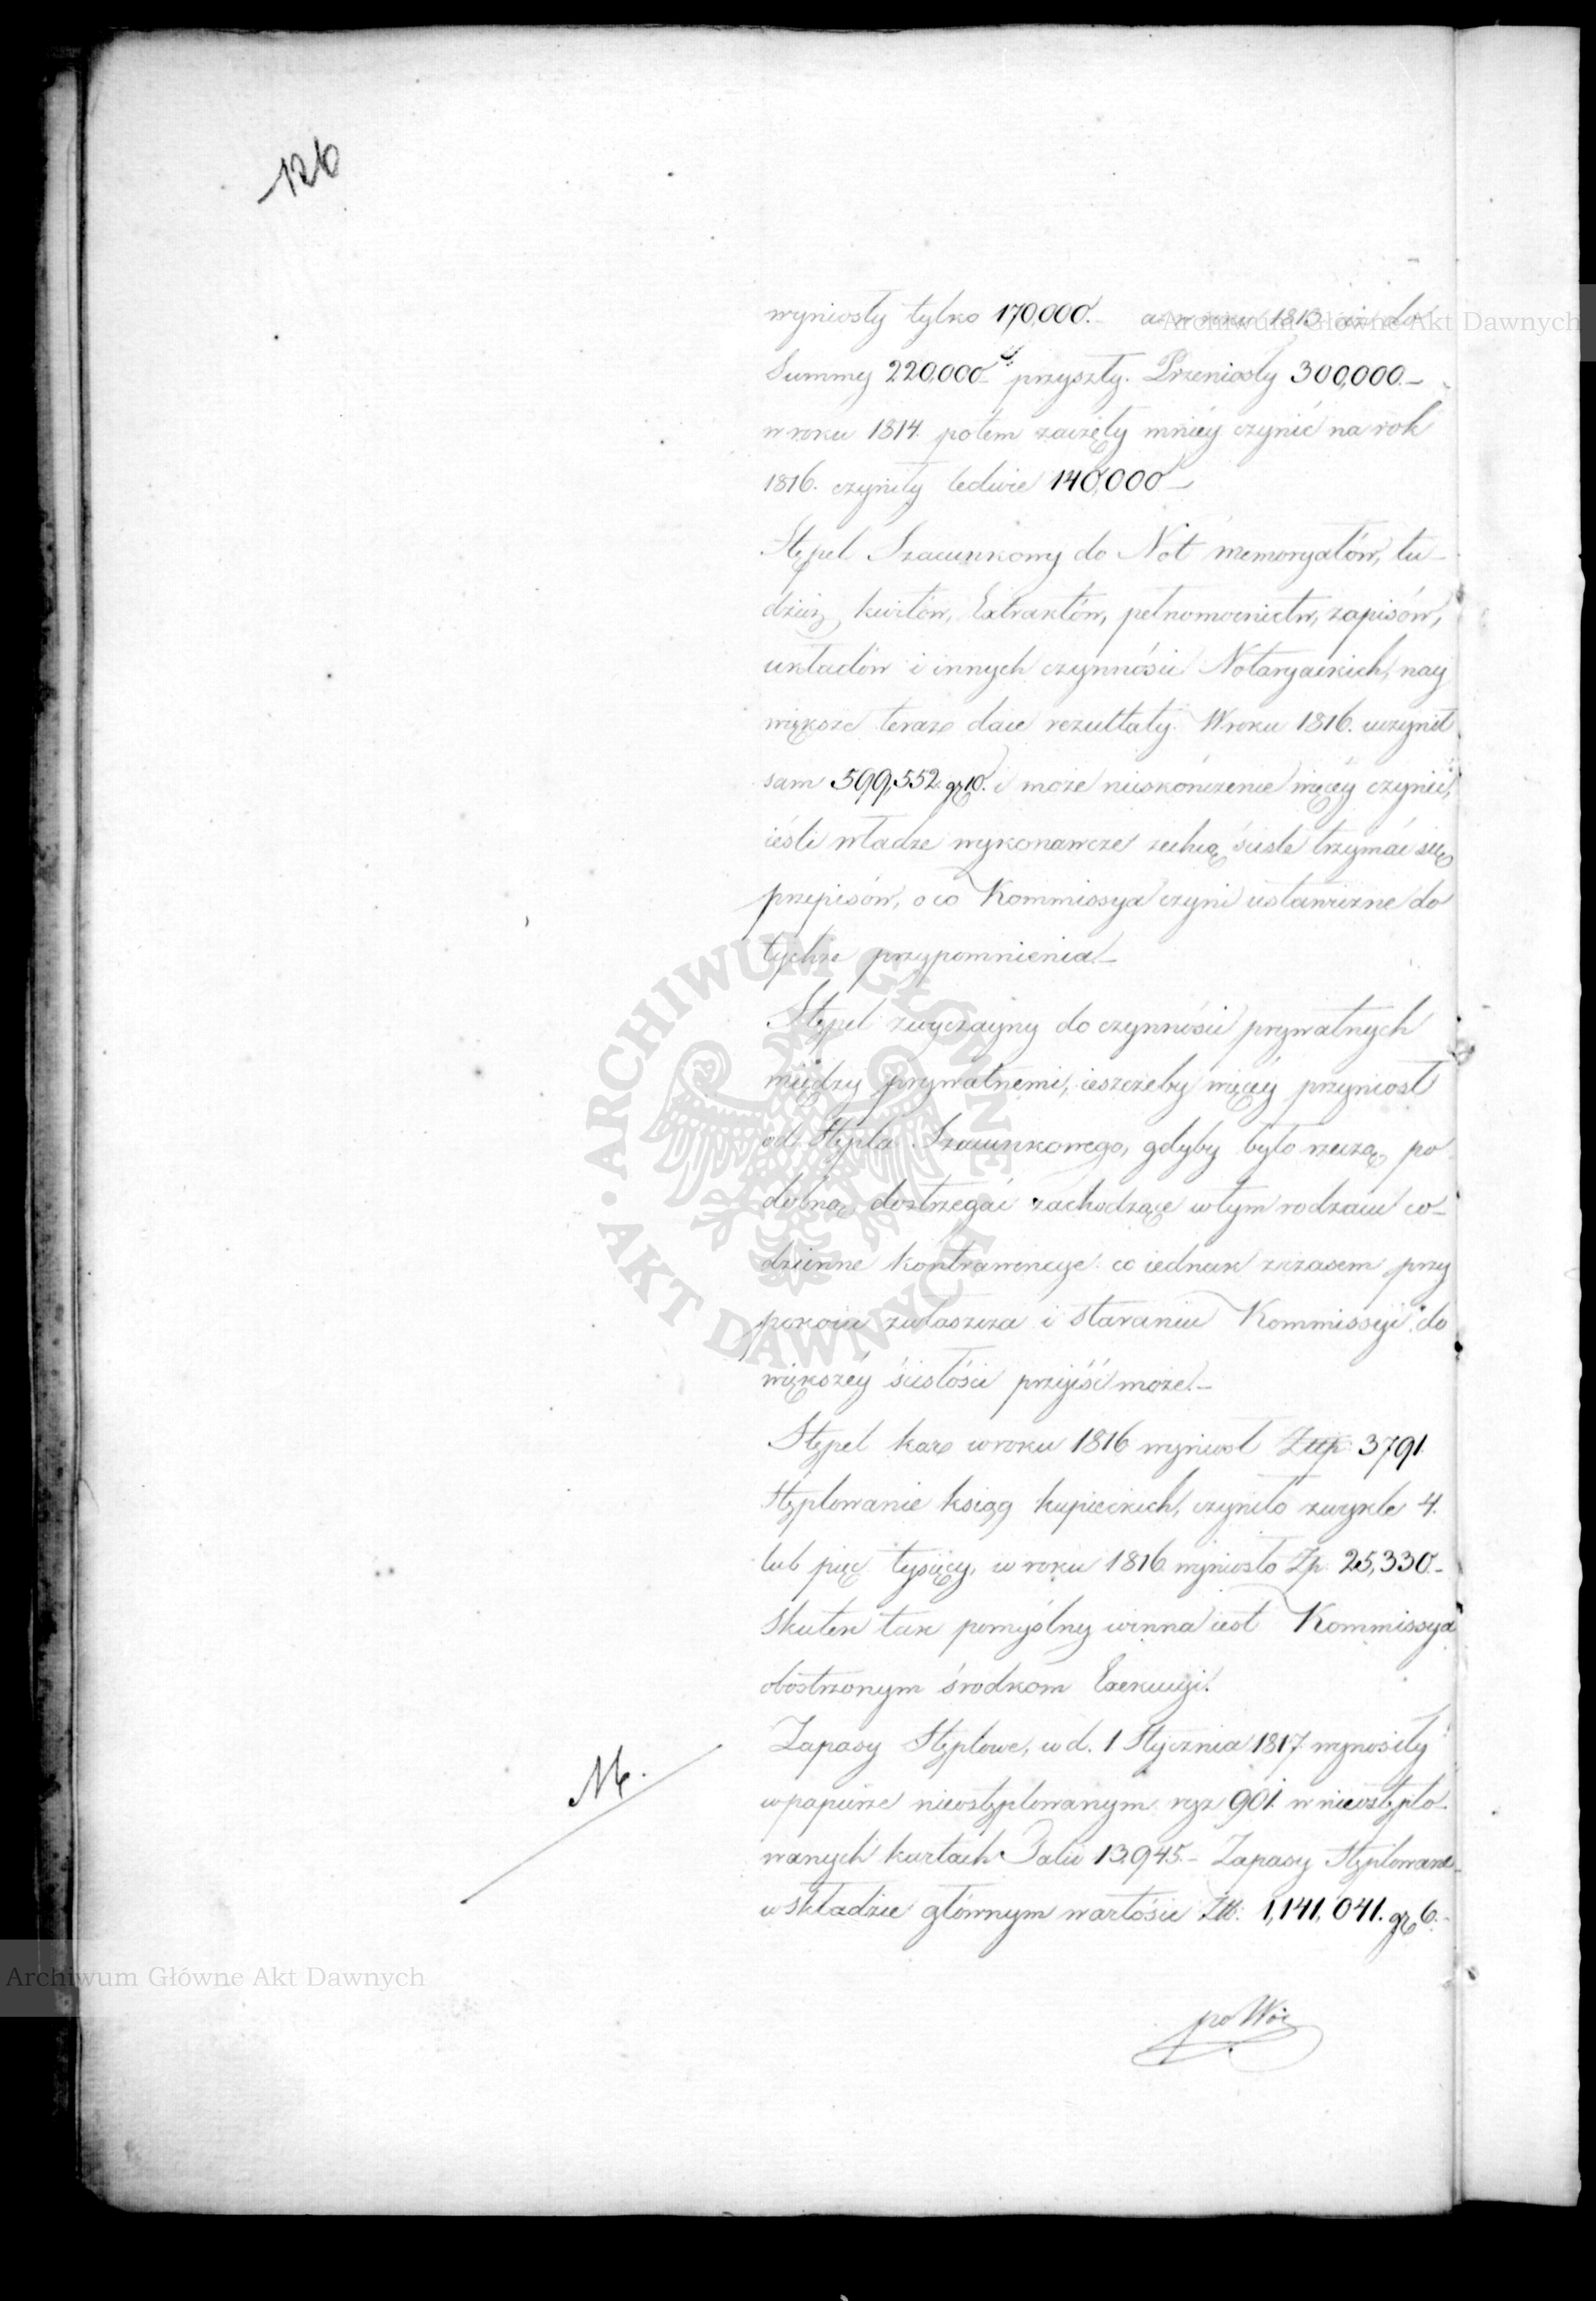 126
wyniosły tylko 170,000.- a w roku 1813 iż do
Summy 220,000 przyszły. Przeniosły 300,000.-
w roku 1814. potem zaczęły mniéy czynić na rok
1816. czyniły ledwie 140,000-
Stępel Szacunkowy do Not memoryałów, tu-
dzież kwitów, Extraktów, pełnomocnictw, zapisów,
układów i innych czynności Notaryackich, nay
większe teraz daie rezultaty. W roku 1816. uczynił
sam 599,552 gr 10. i może nieskończenie więcéy czynić,
ieśli władze wykonawcze zechcą ściśle trzymać się
przepisów, o co Kommissya czyni ustawiczne do
tychże przypomnienia.-
Stępel zwyczayny do czynności prywatnych
między prywatnemi, ieszczeby więcéy przyniosł
od Stępla Szacunkowego, gdyby było rzeczą po
dobną dostrzegać zachodzące w tym rodzaiu co-
dzienne kontrawencye co iednak z czasem przy
pokoiu zwłaszcza i staraniu Kommissyi do
większéy ścisłości przyiść może.-
Stępel kar w roku 1816 wyniosł Złłp. 3791.
Stęplowanie ksiąg kupieckich, czyniło zwykle 4.
lub pięć tysięcy, w roku 1816. wyniosło Zp. 25,330.-
Skutek tak pomyślny winna iest Kommissya
obostrzonym środkom Exekucyi.
Zapasy Stęplowe, w d. 1 Stycznia 1817 wynosiły
w papierze niestęplowanym ryz 901. w niestęplo-
wanych kartach Talii 13,945.- Zapasy Stęplowane
w składzie głównym wartości Złł. 1,141,041. gr 6.-
Archiwum Główne Akt Dawnych
Archiwum Główne Akt Dawnych
ARCHIWUM GŁÓWNE • AKT DAWNYCH •